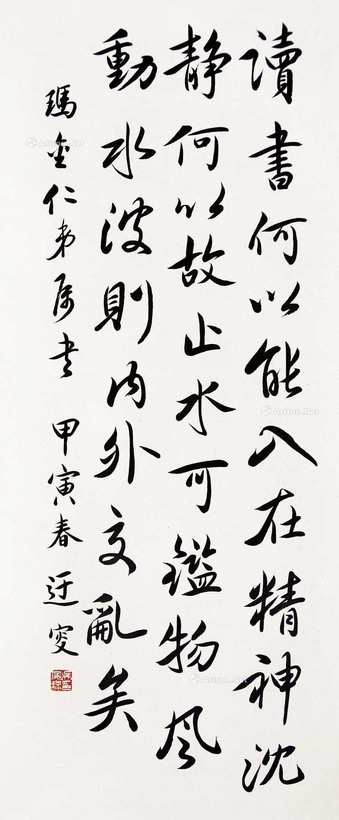 讀書何以能入在精神沈
靜何以故止水可鑑物風
動水波則內外交亂矣
瑪金仁弟屬書 甲寅春 迂叟